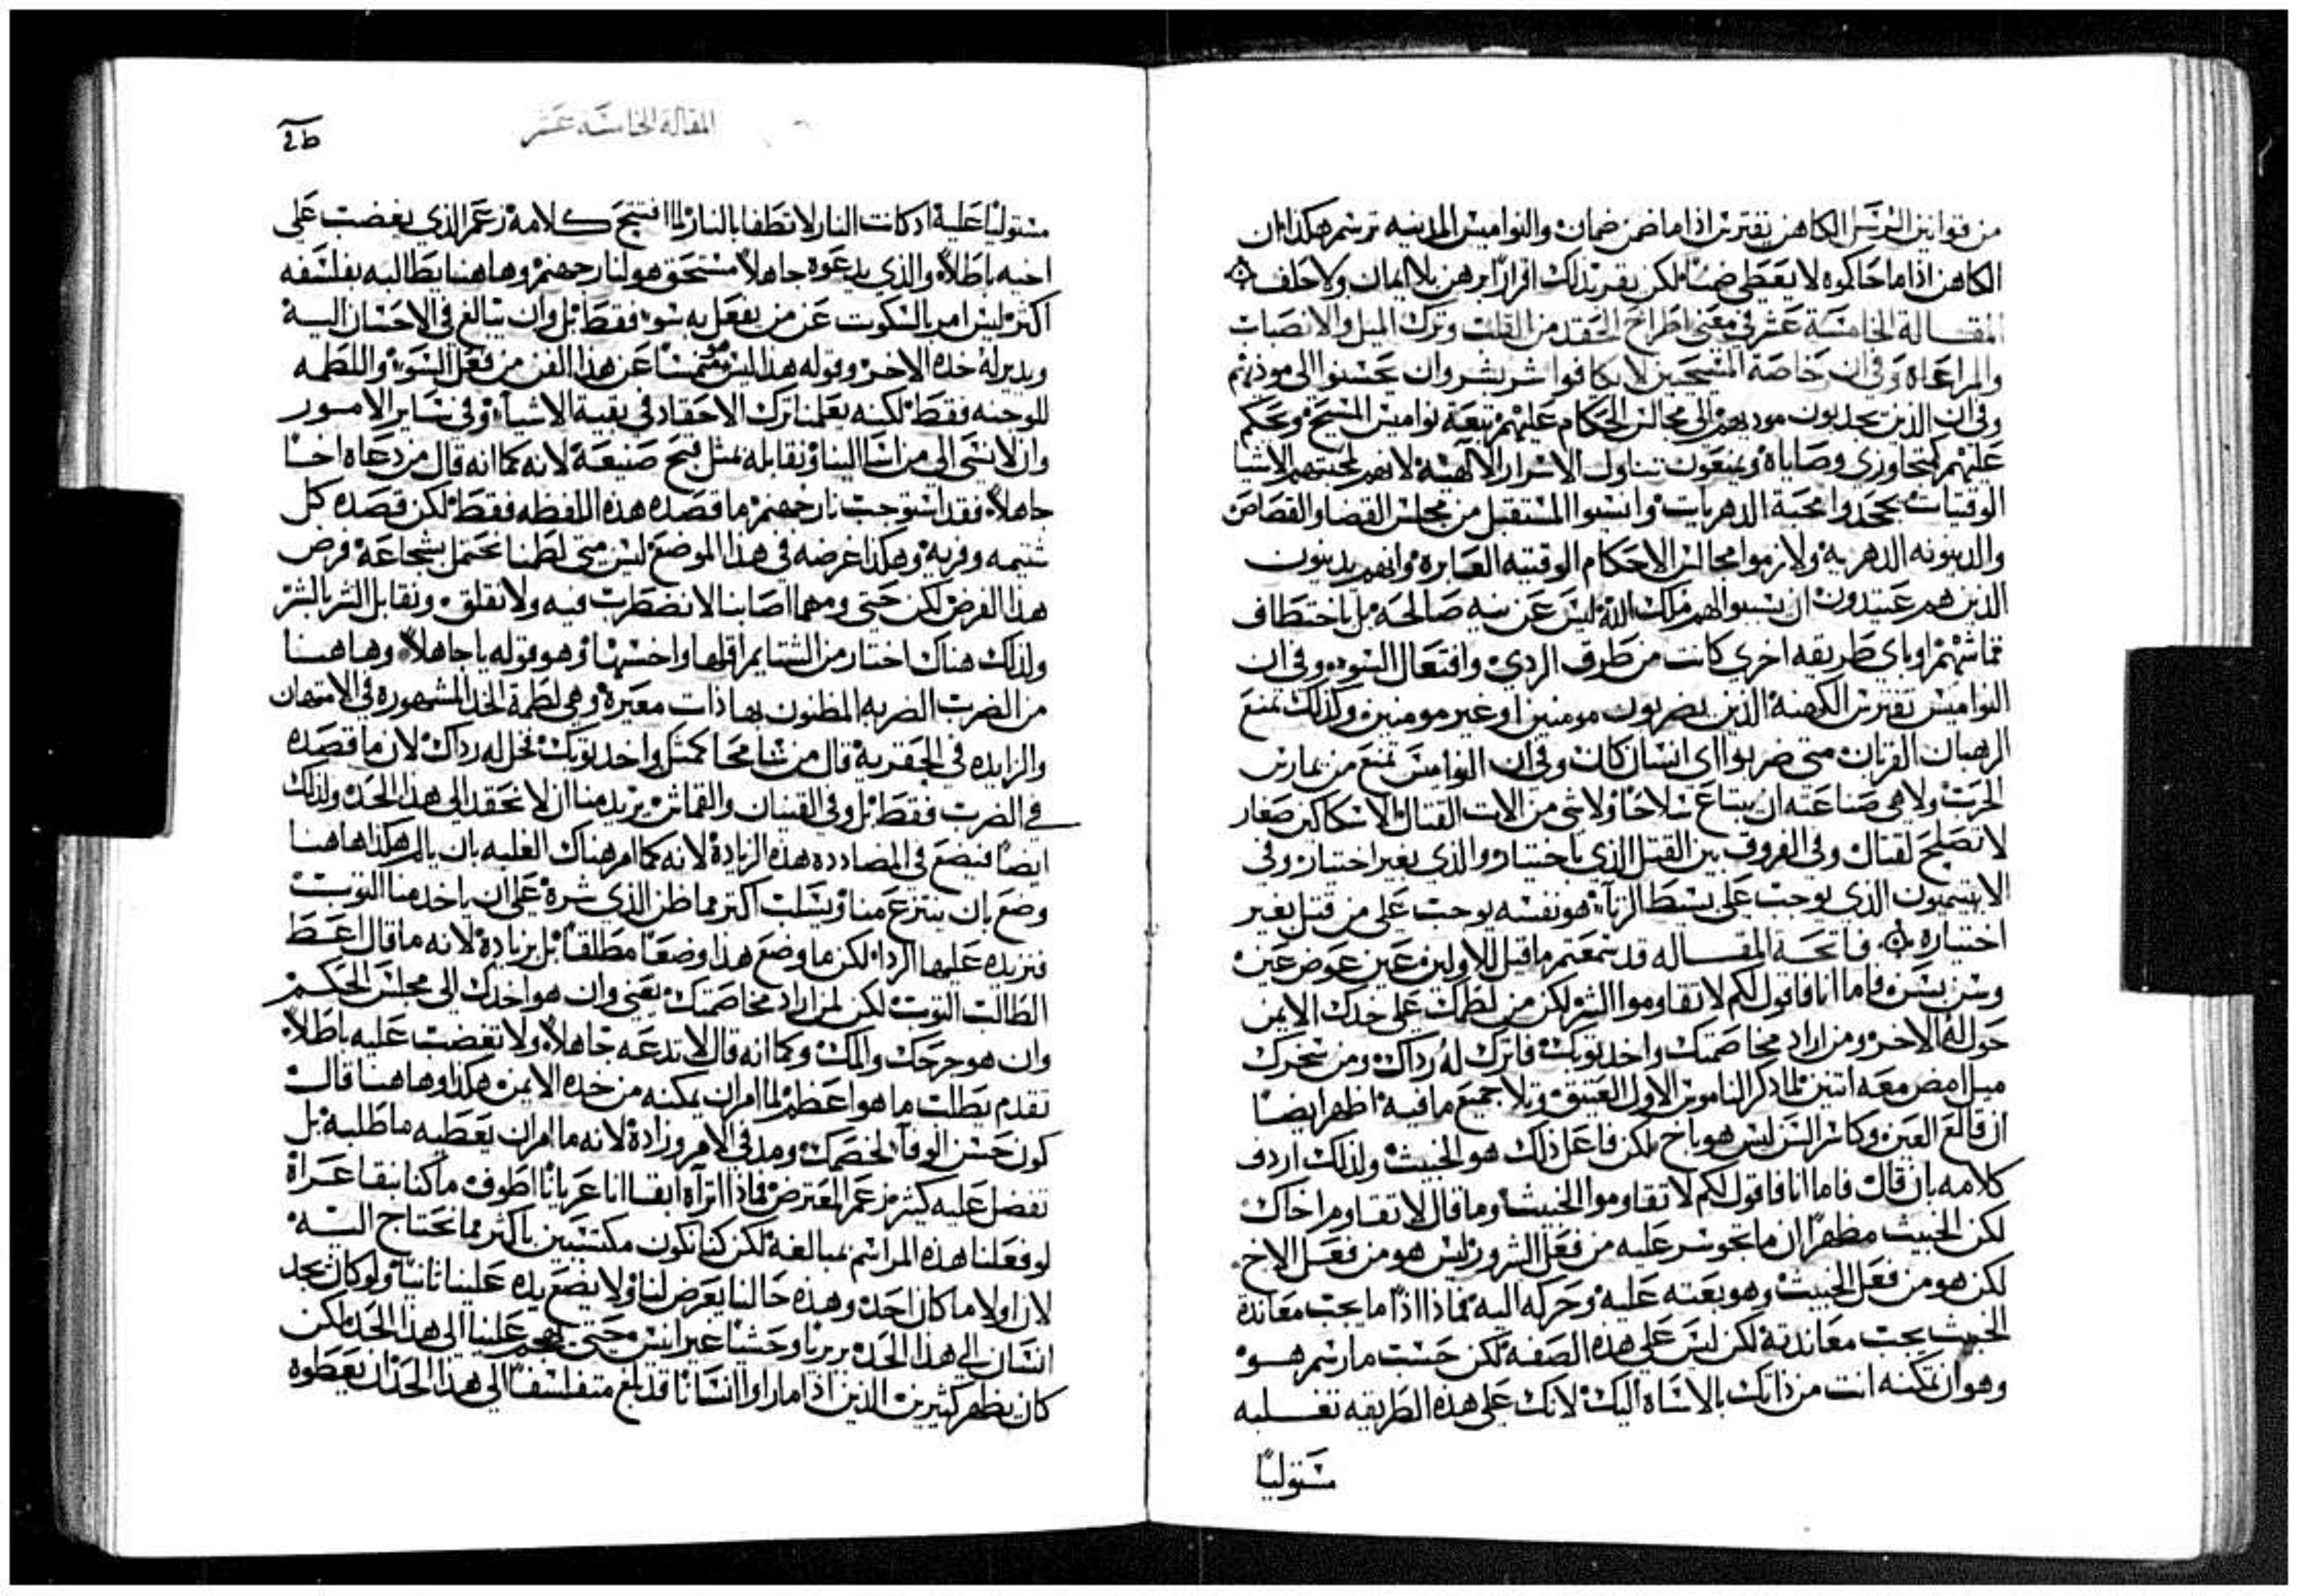 من قوانين الرسل الكاهن يفترس اذا ما ضمن ضمان والنواميس المدنيه ترسم هكذا ان
الكاهن اذا ما حاكموه لا يعطى ضمنًا لكن يقر بذلك اقرارًا برهن بلا ايمان ولا حلف
المقــالة الخامسة عشر في معنى اطراح الحقد من القلب وترك الميل والانصباب
والمراعاة وفي ان خاصة المسيحيين لا يكافوا شر بشر وان يحسنوا الى موذيهم
وفي ان الذين يجذبون موذيهم الى مجالس الحكام عليهم تبعة نواميس المسيح ويحكم
عليهم كمتجاوزي وصاياه ويمنعون تناول الاسرار الالهية لانهم لمحبتهم الاشيا
الوقتيات جحدوا محبة الدهريات وانسوا المستقبل من مجلس القضا والقصاص
والدينونه الدهريه ولازموا مجالس الاحكام الوقتيه العابره وانهم يدينون
الذين هم عتيدون ان يسببوا لهم ملك الله ليس عن نيه صالحه بل باختطاف
قماشهم او باي طريقه اخرى كانت من طرق الردي وافتعال السوء وفي ان
النواميس تفترس الكهنه الذين يضربون مومنين او غير مومنين وكذلك تمنع
الرهبان القربان متى ضربوا اي انسان كان وفي ان النواميس تمنع من يمارس
الحرب ولا هي صناعته ان يبتاع سلاحًا ولا شي من الات القتال الا سكاكين صغار
لا تصلح لقتال وفي الفروق بين القتل الذي باختيار والذي بغير اختيار وفي
الابيتيميون الذي يوجب على بسط الزناه هو نفسه يوجب على من قتل بغير
اختياره فاتحــة المقــاله قد سمعتم ما قيل للاولين عين عوض عين
وسن بسن فاما انا فاقول لكم لا تقاوموا الشر لكن من لطمك على خدك الايمن
حول له الاخر ومن اراد مخاصمتك واخذ ثوبك فاترك له رداك ومن سخرك
ميل امض معه اتنين لما ذكر الناموس الاول العتيق وتلا جميع ما فيه اظهر ايضًا
ان قالع العين وكاسر السن ليس هو باخ لكن فاعل ذلك هو الخبيث ولذلك اردف
كلامه بان قال فاما انا فاقول لكم لا تقاوموا الخبيث وما قال لا تقاوم اخاك
لكن الخبيث مظهرًا ان ما يجوسر عليه من فعل الشرور ليس هو من فعل الاخ
لكن هو من فعل الخبيث وهو بعته عليه وحركه اليه فماذا اذًا ما يجب معاندة
الخبيث يجب معاندته لكن ليس على هذه الصفه لكن حسب ما رسم هــو
وهو ان تمكنه انت من ذاتك بالاساة اليك لانك على هذه الطريقه تغــلبه
مستوليًا
المقالة الخامسة عشر
مستوليًا عليه اذ كانت النار لا تطفا بالنار لما افتتح كلامه زعم الذي يغضب على
اخيه باطلاً والذي يدعوه جاهلاً مستحق هو لنار جهنم وهاهنا يطالبه بفلسفه
اكتر ليس امر بالسكوت عن من يفعل به سو فقط بل وان يبالغ في الاحسان اليه
ويدير له خده الاخر وقوله هذا ليس عن هذا الفن من فعل السوء واللطمه
للوجنه فقط لكنه يعلمنا ترك الاحقاد في بقية الاشياء وفي ساير الامــور
وان لا نسى الى من اسا الينا ونقابله بمثل قبح صنيعه لانه كما انه قال من دعاه اخــًا
جاهلاً فقد استوجب نار جهنم ما قصده هذه اللفظه فقط لكن قصده كل
شتيمه وفريه وهكذا غرضه في هذا الموضع ليس متى لطمنا نحتمل بشجاعه فرض
هذا الفرض لكن حتى ومهما اصابنا لا نضطرب فيه ولا نقلق ونقابل الشر بالشر
ولذلك هناك اختار من الشتايم اقلها واخسها وهو قوله يا جاهلاً وهاهنــا
من الضرب الضربه المظنون بها ذات معيره وهي لطمة الخد المشهوره في الامتهان
والزايده في الحقريه قال من شا محاكمتك واخذ ثوبك فخل له رداك لان ما قصده
في الضرب فقط بل وفي القنيان والقماش يريد منا ان لا نحقد الى هذا الحد ولذلك
ايضًا فيضع في المضادده هذه الزياده لانه كما امر هناك الغلبه بان يالم هكذا هاهنا
وضع بان ينتزع منا ويسلب اكتر مما ظن الذي شره على ان ياخذ منا الثوب
فنزيده عليها الردا لكن ما وضع هذا وضعًا مطلقًا بل بزياده لانه ما قال اعط
الطالب الثوب لكن لمن اراد مخاصمتك يعني وان هو اخذك الى مجلس الحكــم
وان هو جرحك والمك وكما انه قال لا تدعه جاهلاً ولا تغضب عليه باطلاً
تقدم بطلب ما هو اعظم لما امر ان يمكنه من خده الايمن هكذا وهاهنا قال
كون حسن الوفا لخصمك ومد في الامر وزاده لانه ما امر ان يعطيه ما طلبه بل
تفضل عليه كثير زعم المعترض فماذا اتراه ابقا انا عريانًا اطوف ما كنا نبقا عــراة
لو فعلنا هذه المراسم بمبالغة لكن كنا نكون مكتسيين باكثر مما نحتاج اليــه
لان اولا ما كان احد وهذه حالنا يعرض لنا ولا يضع يده علينا ثانيًا ولو كان يجد
انسان الى هذا الحد بربريًا وحشيًا غير انس حتى يهجم علينا الى هذا الحد لكن
كان يظهر كثيرين الذين اذا ما راوا انسانًا قد بلغ متفلسفًا الى هذا الحد ان يعطوه